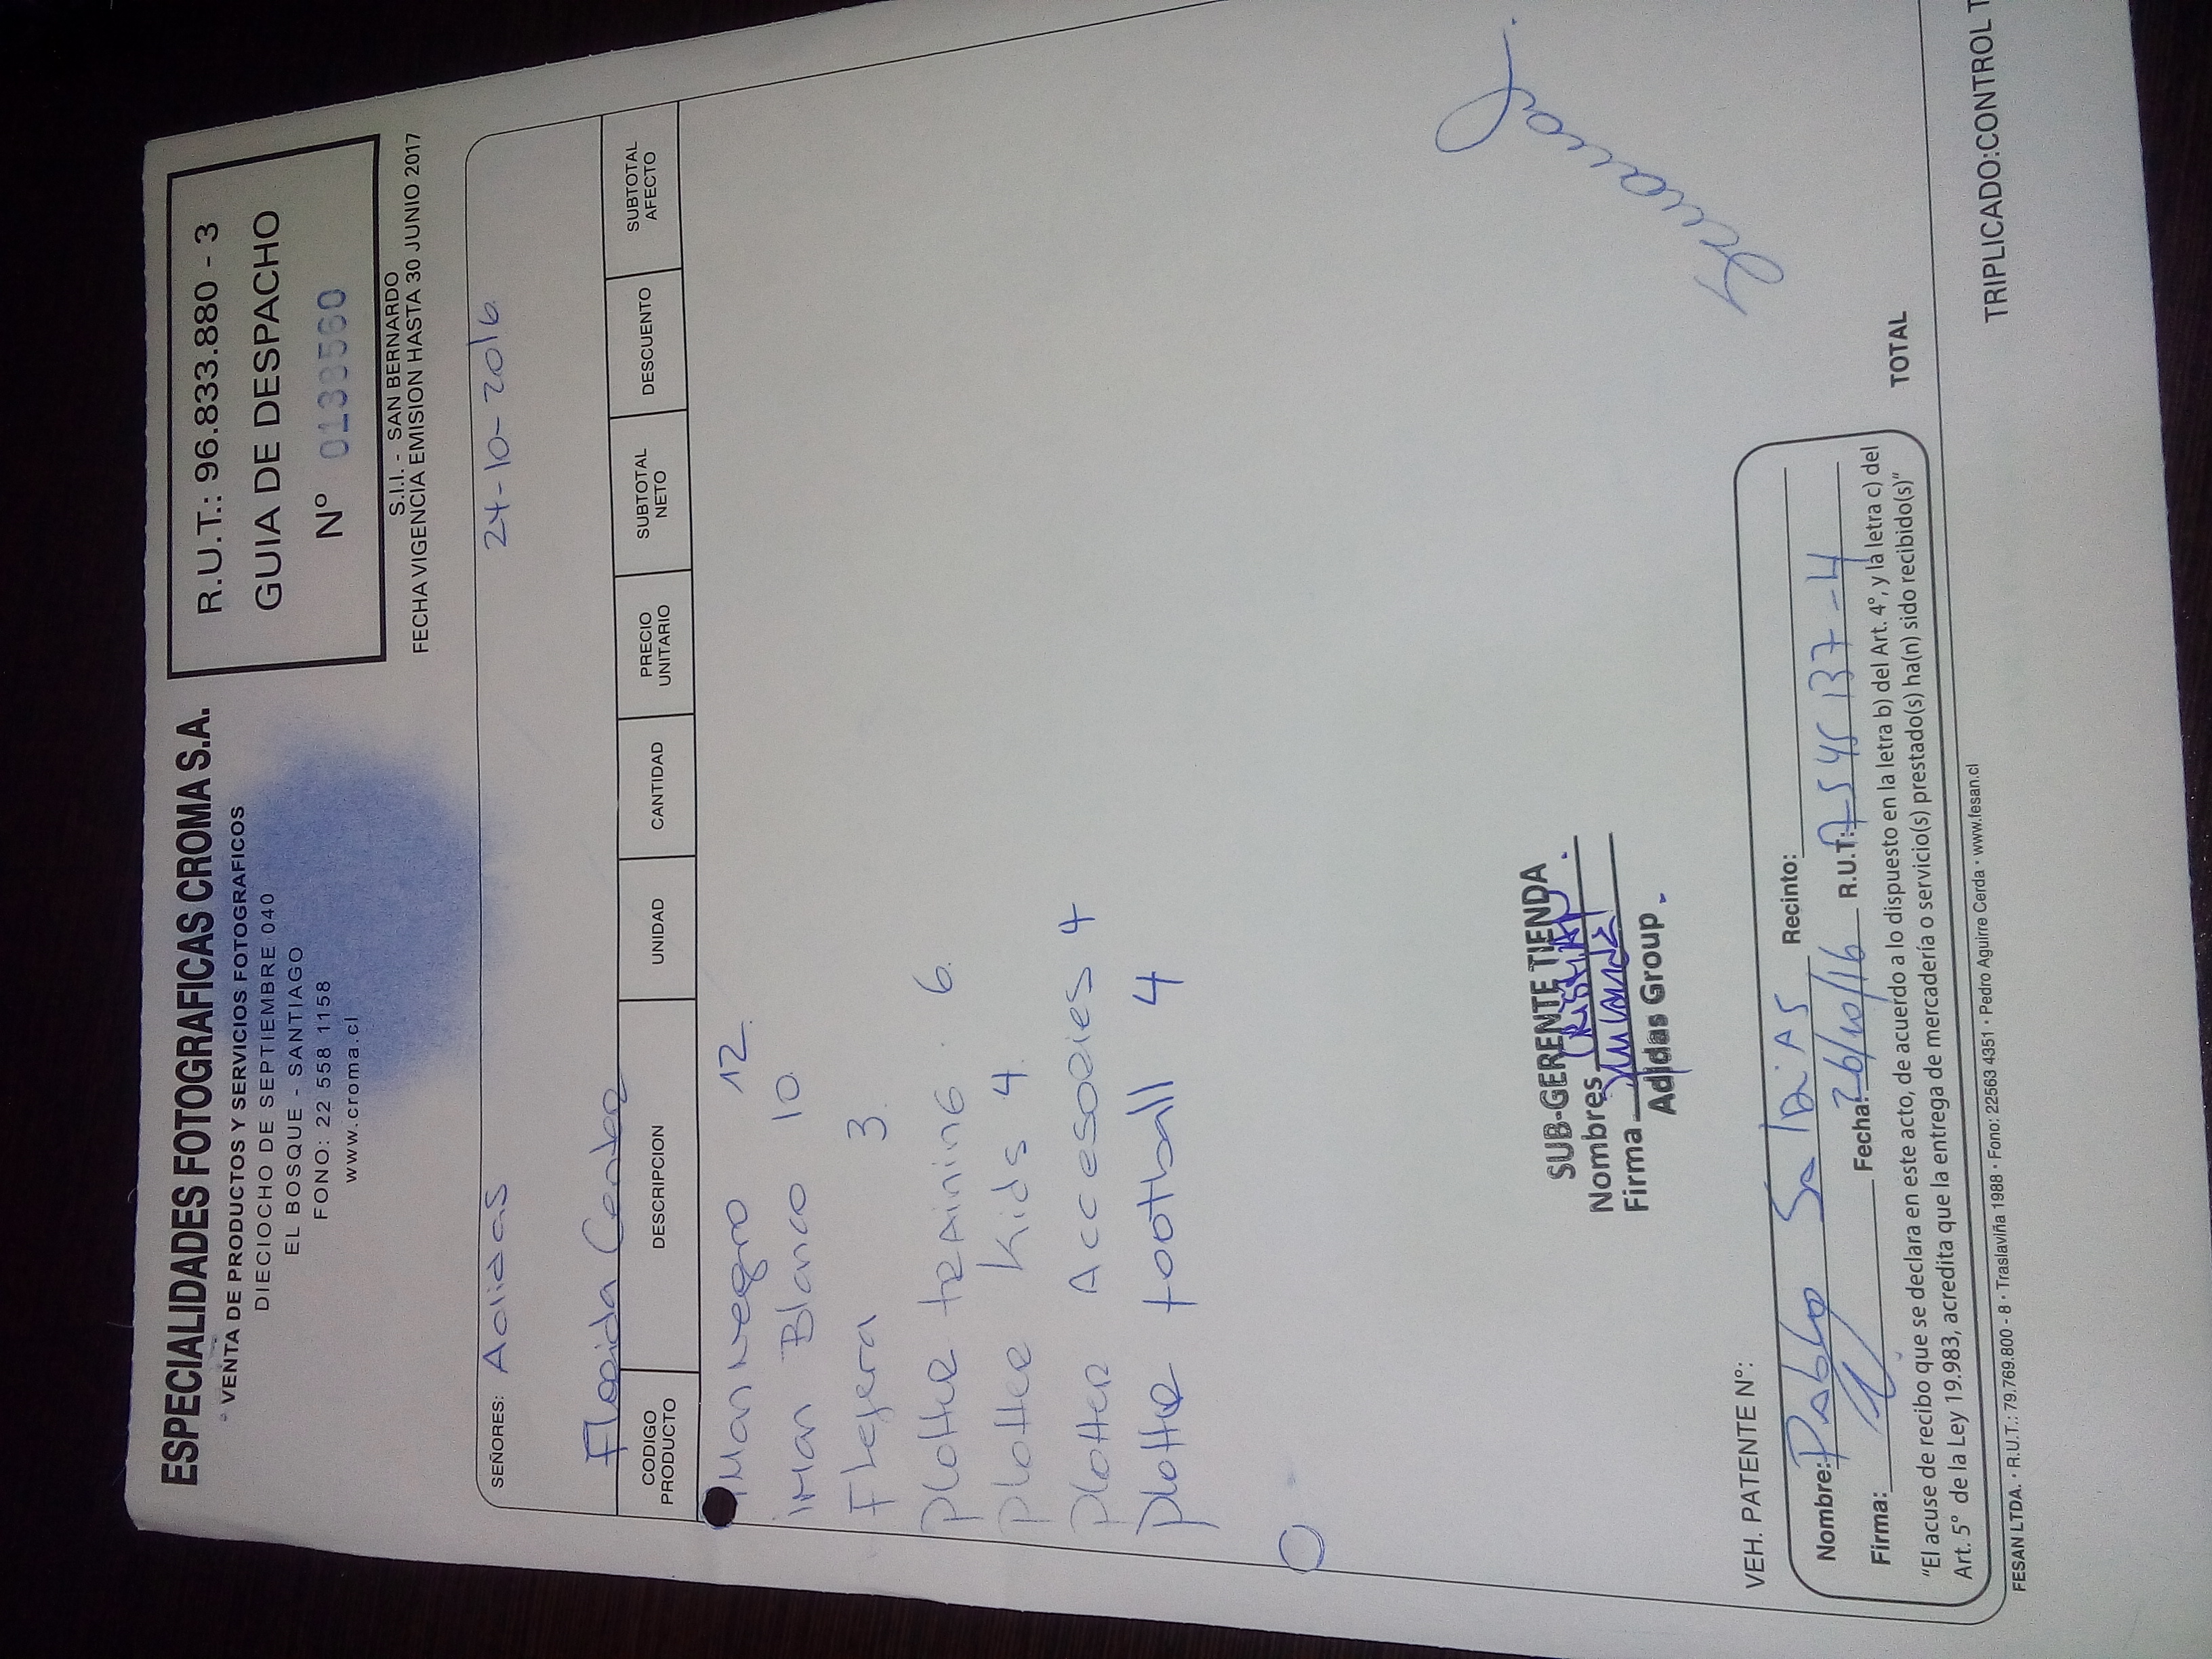 ESPECIALIDADES FOTOGRAFICAS CROMA S.A.
VENTA DE PRODUCTOS Y SERVICIOS FOTOGRAFICOS
DIECIOCHO DE SEPTIEMBRE 040
EL BOSQUE - SANTIAGO
FONO: 22 558 1158
www.croma.cl
R.U.T.: 96.833.880 - 3
GUIA DE DESPACHO
Nº 0138560
S.I.I. - SAN BERNARDO
FECHA VIGENCIA EMISION HASTA 30 JUNIO 2017
SEÑORES: Adidas 24-10-2016
Florida Center
CODIGO PRODUCTO DESCRIPCION UNIDAD CANTIDAD PRECIO UNITARIO SUBTOTAL NETO DESCUENTO SUBTOTAL AFECTO
iman Negro 12
iman Blanco 10
Flejera 3
Plotter training 6
Plotter Kids 4
Plotter Accesories 4
Plotter football 4
SUB-GERENTE TIENDA
Nombres CRistiAN
Firma
Adidas Group
Semanal
VEH. PATENTE Nº:
Nombre: Pablo Saldias Recinto:
Firma: Fecha: 26/10/16 R.U.T: 545 137-4
"El acuse de recibo que se declara en este acto, de acuerdo a lo dispuesto en la letra b) del Art. 4º, y la letra c) del
Art. 5º de la Ley 19.983, acredita que la entrega de mercadería o servicio(s) prestado(s) ha(n) sido recibido(s)"
TOTAL
FESAN LTDA. • R.U.T.: 79.769.800 - 8 • Traslaviña 1988 • Fono: 22563 4351 • Pedro Aguirre Cerda • www.fesan.cl
TRIPLICADO:CONTROL T